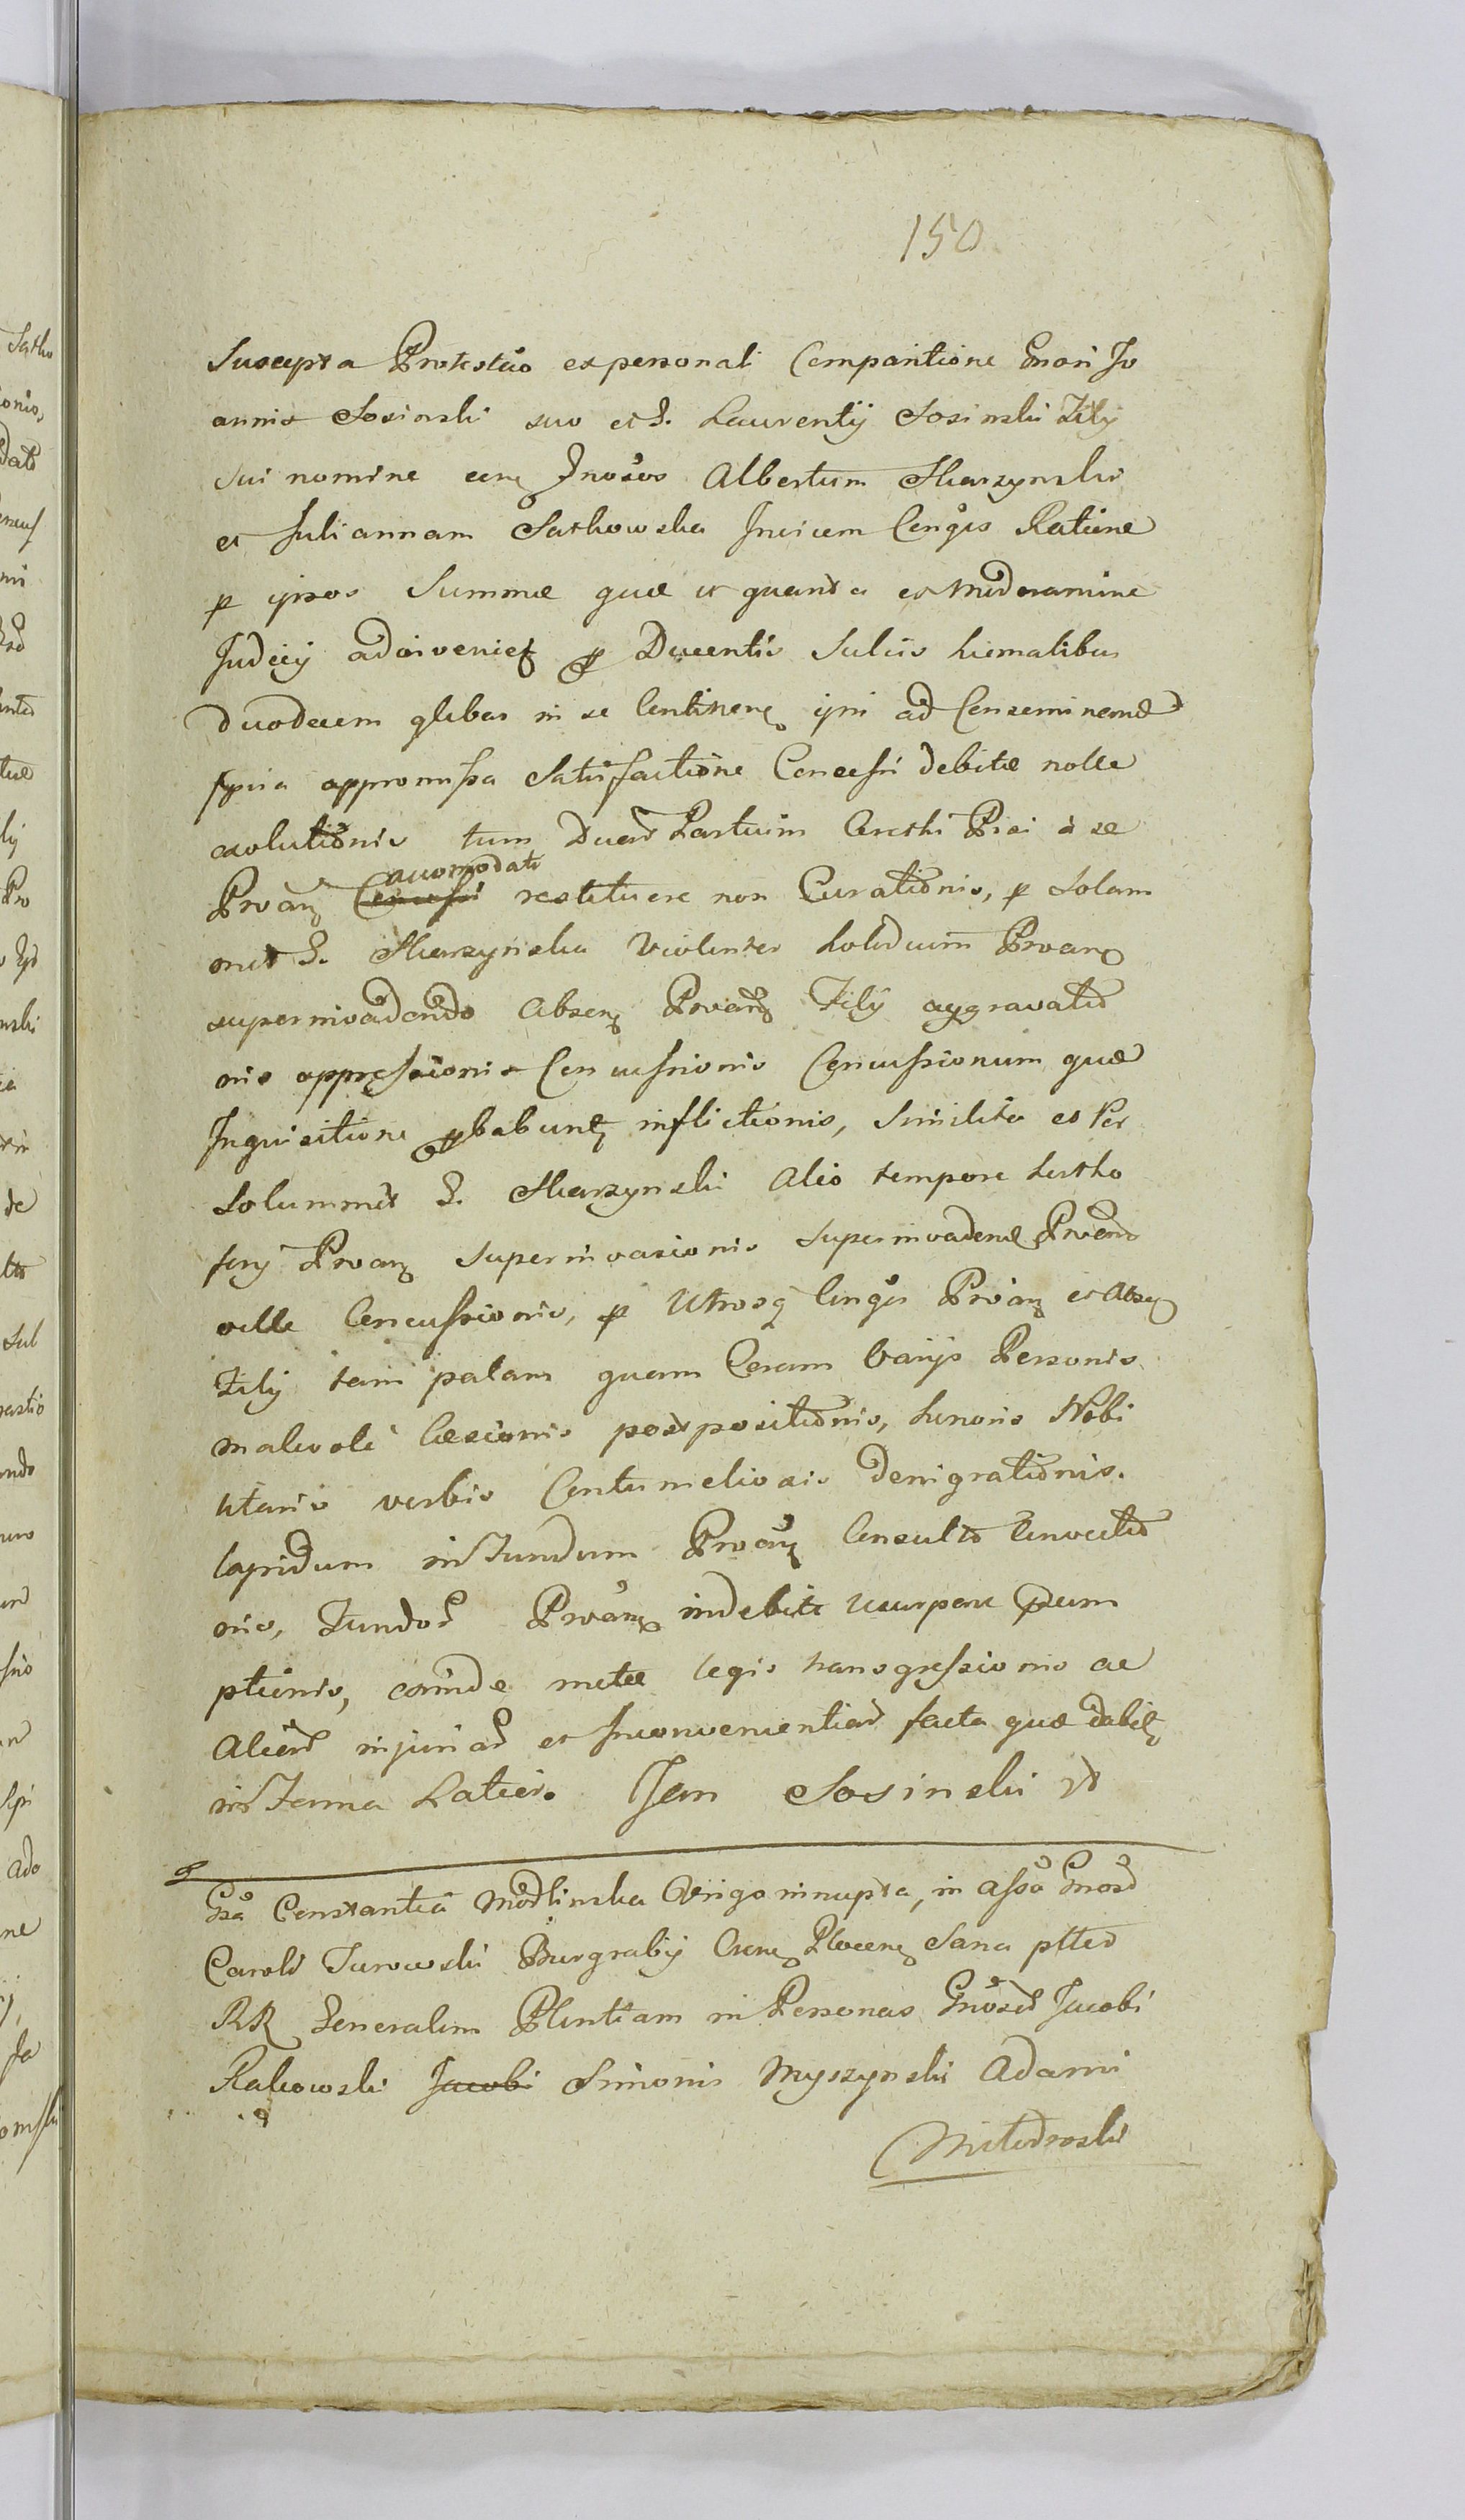 150
Suscepta Protestio ex personali Comparitione Gnosi Jo
annis Sosinski suo et G. Laurentij Sosinski Filij
sui nomine con Gnosos Albertum Skarzynski
et Juliannam Sarkowska Invicem Conges Ratione
p ipsos Summæ quæ et quanta ex Moderamine
Judicij adinveniet p Ducentis Sulcis hiemalibus
duodecim glebas in se Continen ipsi ad Conseminand
spcia appromissa Satisfactione Concessi debitæ nolle
exolutionis tum Duar Partium
Proan Concessi accomodati restituere non Curationis, p Solam
met G. Skarzynska Violenter Proan
superinvadendo Absen Proan Filij aggravatio
nis oppressionis Concussionis Concussionum quæ
Inquisitione pbabunt inflictionis, Similiter et Per
Solummet G. Skarzynski Alio tempore
Proan Superinvasionis Superinvadend Proand
velle Concussionis, p Utrosq Conges Proan et Absen
Filij tam palam quam Coram Varijs Personis
malevole læsionis postpositionis, honoris Nobi
litaris verbis Contumeliosis denigrationis.
lapidum in Fundum Proan Consulto Convectio
nis, Fundos Proan indebite Usurpare præsum
ptionis, coinde metæ legis transgressionis ac
Alias injurias et Inconvenientias facta quæ dabit
in Termino Latius. Jan Sosinski
Gsa Constantia Modlinska Virgo innupta, in assa Gnosi
Caroli Turowski Burgrabij Cren Plocen Sana pttes
RR Generalem Plentiam in Personas Gnosos Jacobi
Rakowski Jacobi Simonis Myszynski Adami
Miturski